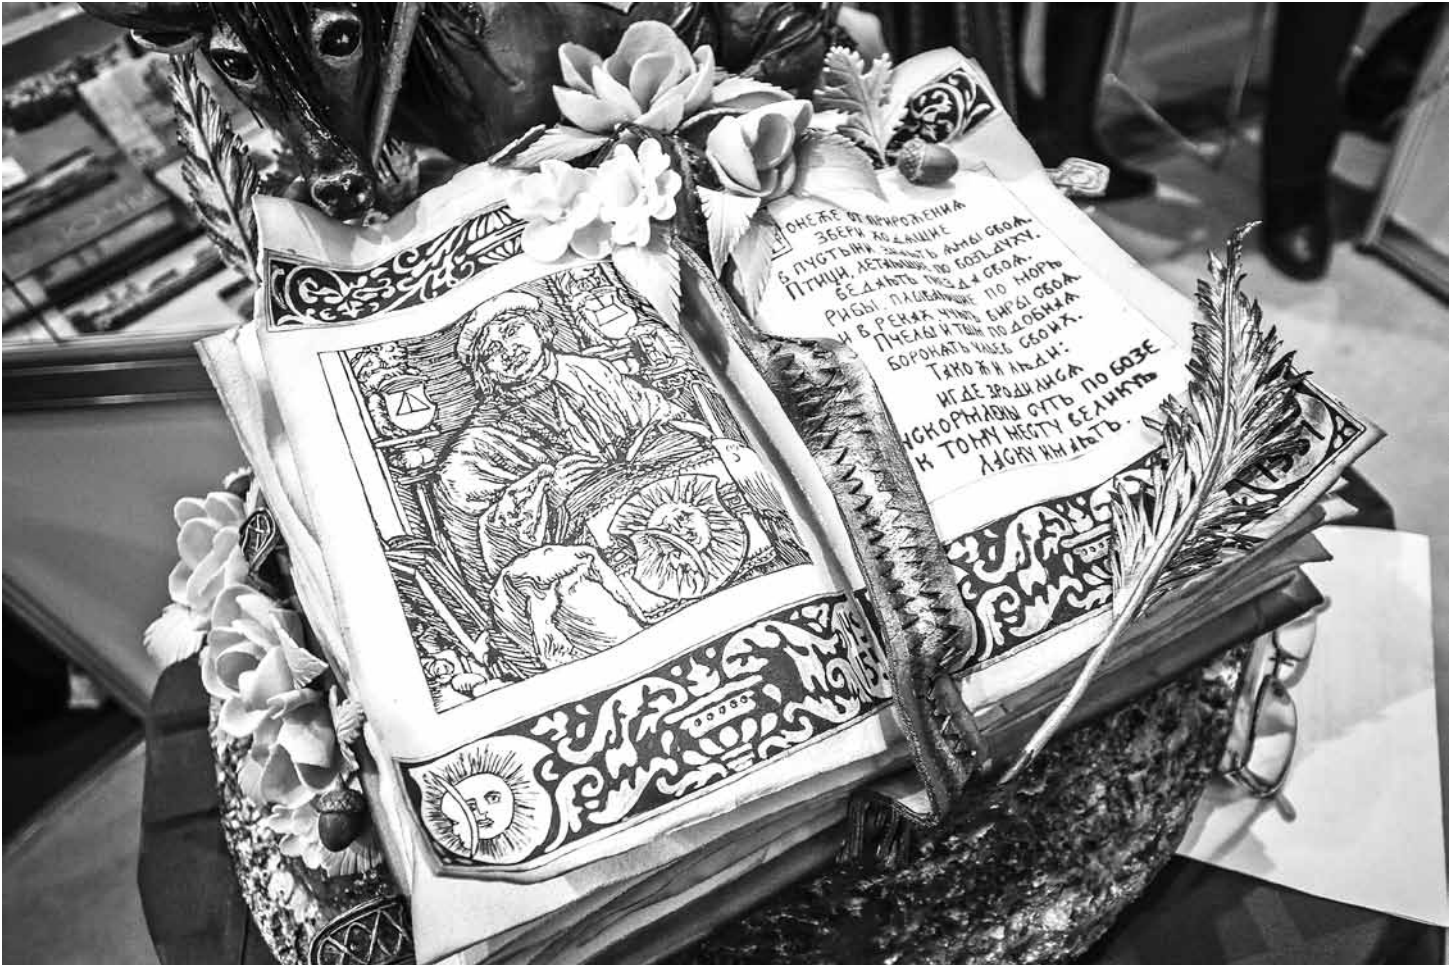 ПОНЕЖЕ ОТ ПРИРОЖЕНИЯ
ЗВЕРИ ХОДЯЩИЕ
В ПУСТЫНИ, ЗНАЮТЬ ЯМЫ СВОЯ.
ПТИЦИ, ЛЕТАЮЩИЕ ПО ВОЗЪДУХУ,
ВЕДАЮТЬ ГНЕЗДА СВОЯ.
РИБЫ, ПЛЫВАЮЩИЕ ПО МОРЮ
И В РЕКАХ ЧУЮТЬ ВИРЫ СВОЯ
ПЧЕЛЫ И ТЫМ ПОДОБНАЯ
БОРОНЯТЬ УЛЬЕВ СВОИХ.
ТАКО Ж И ЛЮДИ:
ИГДЕ ЗРОДИЛИСЯ
УСКОРМЛЕНЫ СУТЬ ПО БОЗЕ
К ТОМУ МЕСТУ ВЕЛИКУЮ
ЛАСКУ ИМАЮТЬ.